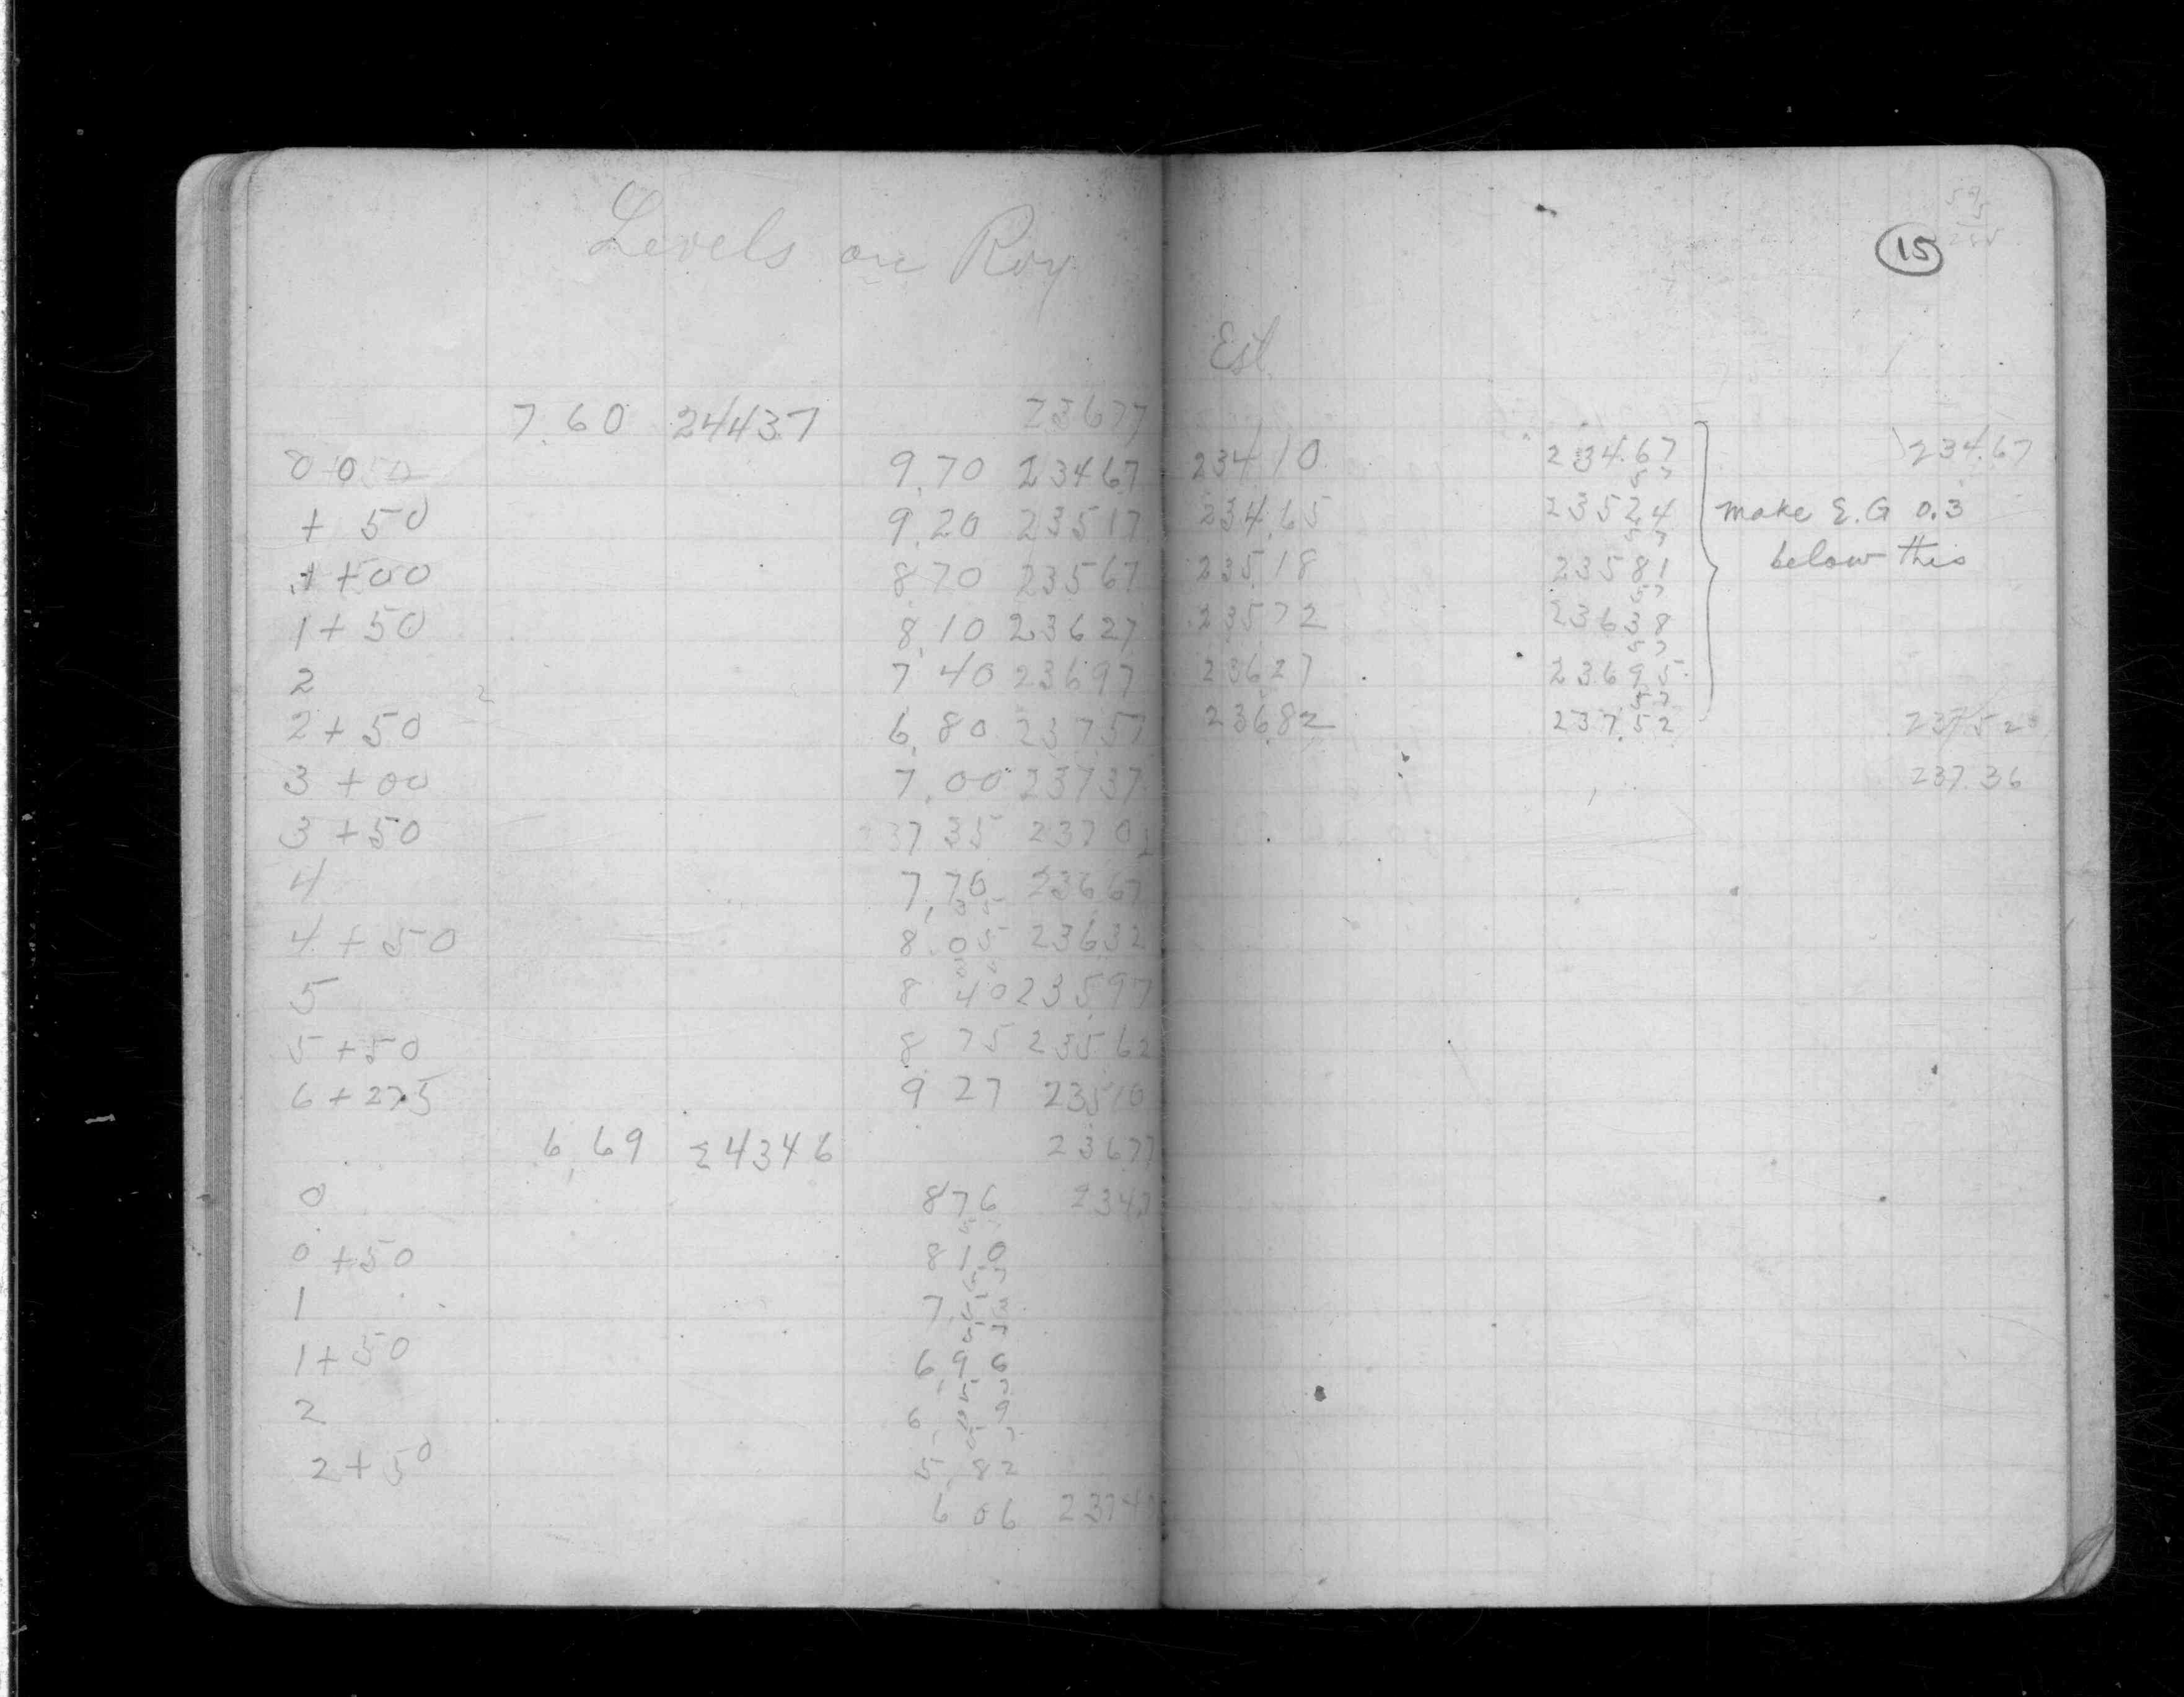 Levels on Roy
7.60 24437 23677
0+0 9.70 23467
+ 50 9.20 23517
1 +00 8.70 23567
1 + 50 8.10 23627
2 7 40 23697
2 + 50 6.80 23757
3 +00 7.00 23737
3 +50 237 35 2370
4 7.70 23667
4 + 50 8.05 23632
5 8 40 23597
5 +50 8 75 23562
6 + 27.5 9 27 23510
6.69 24346 23677
0 876 2347
0 +50 810
1 7
1+ 50 6.96
2 6 9
2 + 50 5.82
6 06 2374
15
Est.
234.10 234.67 234.67
57
234.65 23524 make E.G 0.3
57
235 18 23581 below this
57
23572 23638
57
23627 23695
57
23682 237.52 237.52
237.36